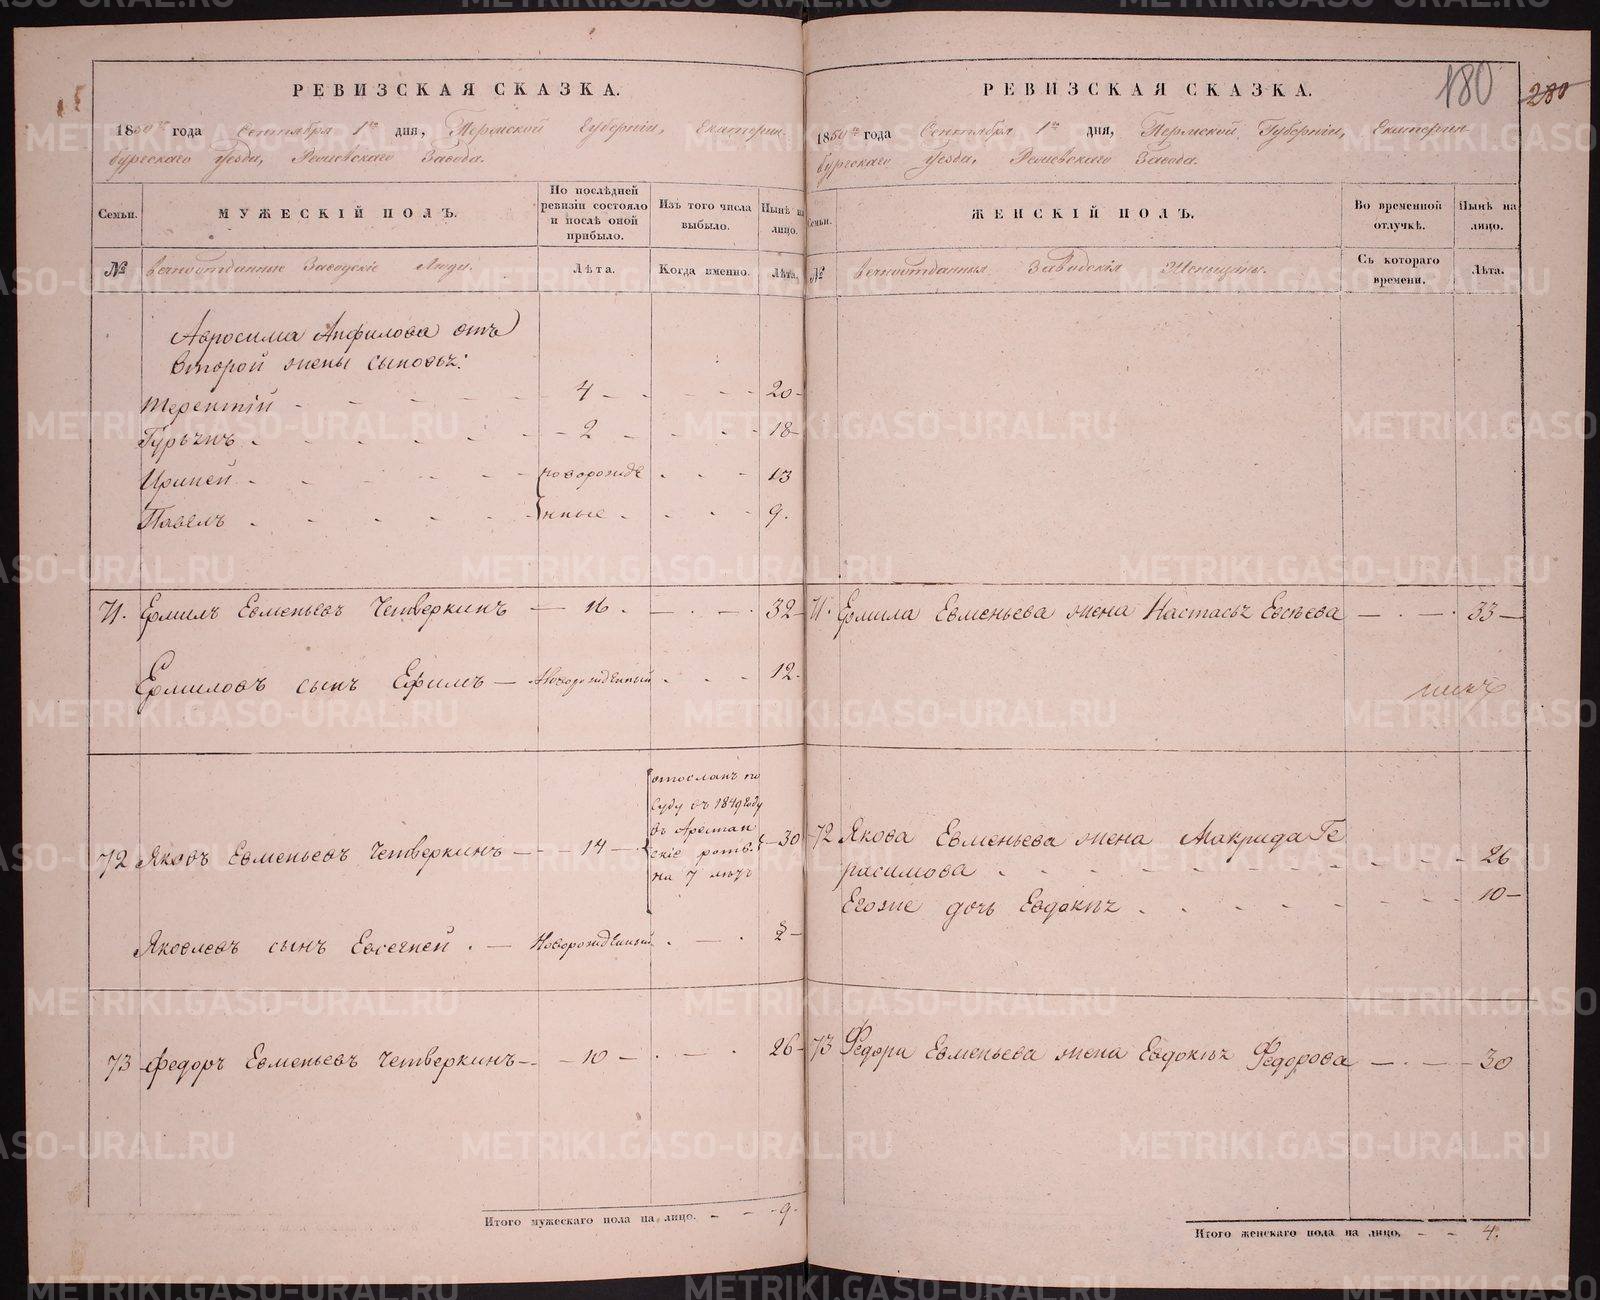 РЕВИЗСКАЯ СКАЗКА.
1850го года Сентября 1го дня, Пермской Губернiи, Екатерин-
бургскаго Уезда, Режевскаго Завода.
Семьи.
МУЖЕСКIЙ ПОЛЪ.
По послѣдней ревизiи состояло и послѣ оной прибыло.
Изъ того числа выбыло.
Нынѣ на лицо.
№
вечноотданные Заводскiе Люди.
Лѣта.
Когда именно.
Лѣта.
Авросима Анфилова отъ
второй жены сыновьѣ:
Терентiй 4 20
Гурьянъ 2 18
Ириней новорожде 13
Павелъ нные 9.
71. Ермилъ Евменьевъ Четверкинъ 16 32
Ермиловъ сынъ Ефимъ Новорожденный 12.
72 Яковъ Евменьевъ Четверкинъ 14 отосланъ по
суду въ 1849 году
въ Арестан
скiе роты
на 7 лѣтъ 30
Яковлевъ сынъ Евсегней Новорожденный 2
73 Федоръ Евменьевъ Четверкинъ 10 26
Итого мужескаго пола на лицо. 9.
180
280
РЕВИЗСКАЯ СКАЗКА.
1850го года Сентября 1го дня, Пермской Губернiи, Екатерин-
бургскаго Уезда, Режевскаго Завода.
Семьи.
ЖЕНСКIЙ ПОЛЪ.
Во временной отлучкѣ.
Нынѣ на лицо.
№
вечноотданныя Заводскiя Женщины.
Съ котораго времени.
Лѣта.
71. Ермила Евменьева жена Настасьѣ Евсѣева 33
72 Якова Евменьева жена Макрида Ге
расимова 26
Егоже дочь Евдокѣѣ 10
73 Федора Евменьева жена Евдокѣѣ Федорова 30
Итого женскаго пола на лицо, 4.
METRIKI.GASO-URAL.RU